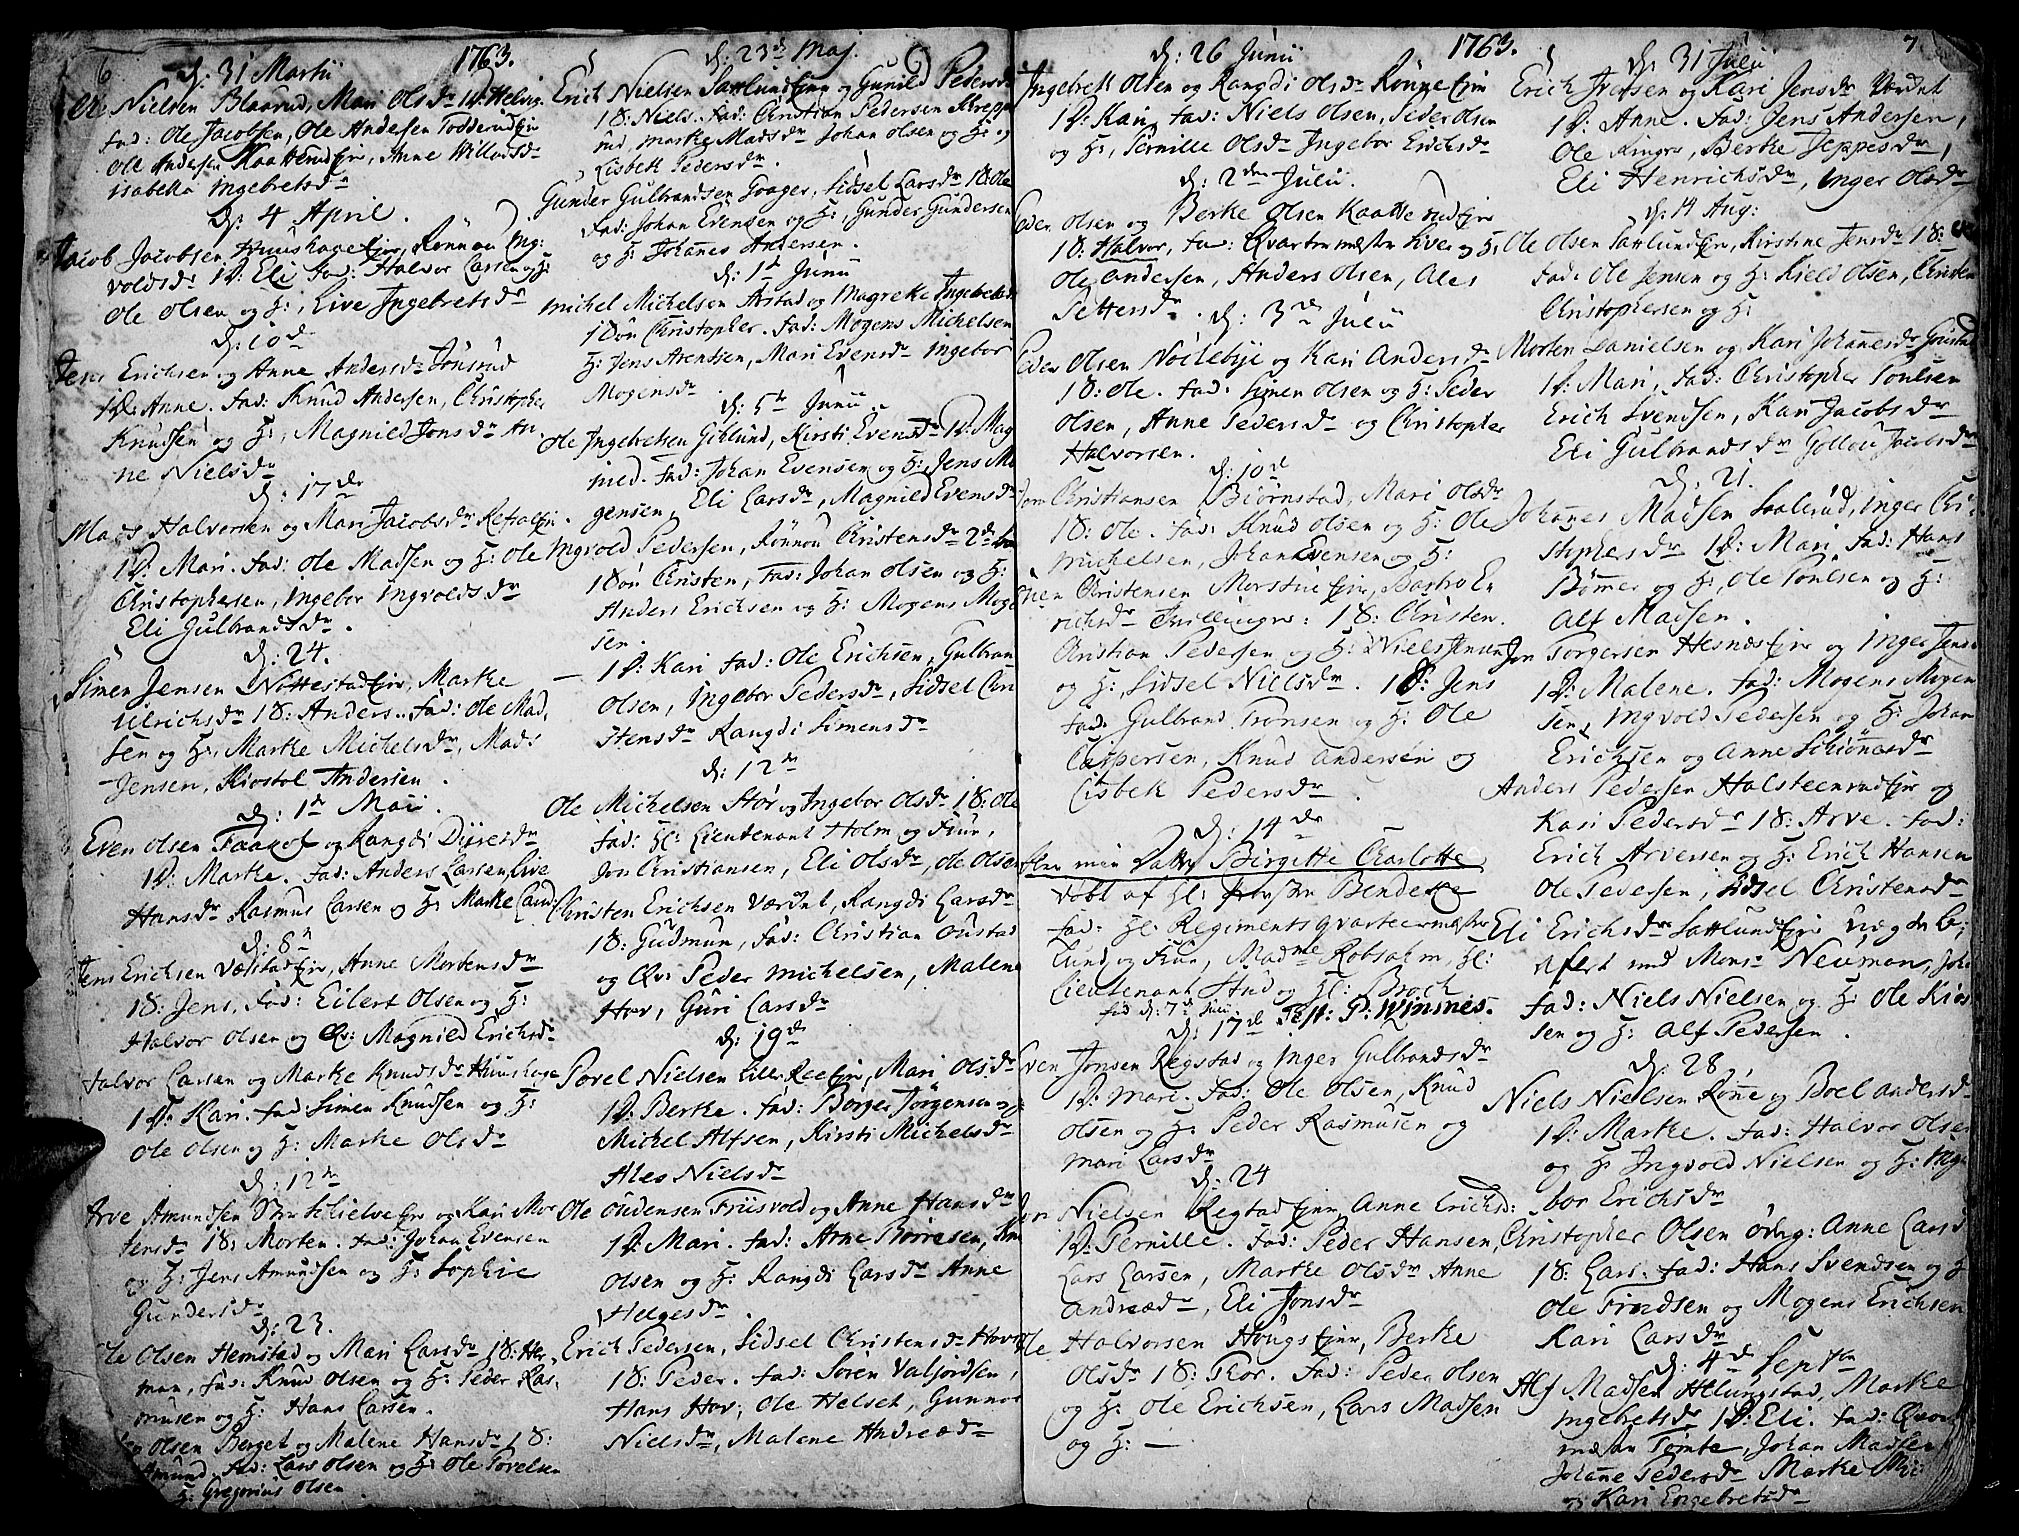 6
1763.
d: 31 Martii
Ole Nielsen Blaarud, Mari Olsdr 1 D: Helvig.
fad: Ole Jacobsen, Ole Andersen Todderud Eier
Ole Andersen Kaatterud Eier, Anne Willadsdr
isabella Ingebretsdr
d: 4 April.
Jacob Jacobsen Huushage Eier, Rönnou Ing:
voldsdr 1 D: Eli fad: Halvor Larsen og H:
Ole Olsen og H:, Live Ingebretsdr
d: 10de
Jens Erichsen og Anne Andersdr Jönsrud
1 D: Anne. fad: Knud Andersen, Christopher
Knudsen og H:, Magnild Jonsdr An-
ne Nielsdr
d: 17de
Mads Halvorsen og Mari Jacobsdr
1 D: Mari. fad: Ole Madsen og H: Ole
Christophersen, Ingebor Ingvoldsdr
Eli Gulbrandsdr.
d: 24.
Simen Jensen Nöttestad Eier, Marthe
Ulrichsdr 1 S: Anders. fad: Ole Mad,
sen og H:, Marthe Michelsdr, Mads
Jensen, Kiostol Andersen.
d: 1de Maii.
Even Olsen Taaxol og Rangdi Dyresdr
1 D: Marthe. fad: Anders Larsen, Live
Hansdr Rasmus Larsen og H: Marthe
d: 8n
Jens Erichsen Vældstad Eier, Anne Mortensdr
1 S: Jens, fad: Eilert Olsen og H:
Halvor Olsen og Qv: Magnild Erichsdr
Halvor Larsen og Marthe Knudsdr Huushage
1 D: Kari. fad: Simen Knudsen og H:
Ole Olsen og H: Marthe Olsdr
d: 12te
Arve Amundsen og Kari Mor
tensdr 1 S: Morten. fad: Johan Evensen
og H: Jens Amundsen og H: Sophie
Gundersdr
d: 23.
Ole Olsen Hemstad og Mari Larsdr 1 S: Her,
man, fad: Knud Olsen og H: Peder Ras,
musen og H: Hans Larsen.
Olsen Berget og Malene Hansdr 1 S:
Amund. fad: Lars Olsen og H: Ole Povelsen
H: Gregorius Olsen.
d: 23de Maj.
Erich Nielsen Sattlund Eier og Gunild Pedersdr
1 S: Niels. fad: Christian Pedersen Skreppe
rud, Marthe Madsdr Johan Olsen og H: og
Lisbeth Pedersdr.
Gunder Gulbrandsen Goager, Sidsel Larsdr 1 S: Ole
fad: Johan Evensen og H:, Gunder Gundersen
og H: Johannes Andersen.
d: 1te Junii
Michel Michelsen Arstad og Magrethe Ingebretsdr
1 Sön Christopher. fad: Mogens Michelsen
H: Jens Arentsen, Mari Evensdr Ingebor
Mogensdr
d: 5te Junii.
Ole Ingebretsen Gihlund, Kirsti Evensdr 1 D: Mag
nild. fad: Johan Evensen og H: Jens Mo
gensen, Eli Larsdr, Magnild Evensdr
Ingvold Pedersen, Rönnou Christensdr 2de
1 Sön Christen, fad: Johan Olsen og H:
Anders Erichsen og H: Mogens Moge
sen.
— 1 D: Kari fad: Ole Erichsen, Gulbran
Olsen, Ingebor Pedersdr, Sidsel Chri
stensdr Rangdi Simensdr
d: 12te
Ole Michelsen Stör og Ingebor Olsdr 1 S: Ole
fad: Hl: Lieutenant Holm og Frue,
Jon Christiansen, Eli Olsdr, Ole Olsen
Christen Erichsen Værdet, Rangdi Larsdr
1 S: Gudmun, fad: Christian Oustad
og Qv: Peder Michelsen, Malene
Hov, Guri Larsdr
d: 19de
Povel Nielsen Lille Ree Eier, Mari Olsdr
1 D: Berthe. fad: Borger Jörgensen og
Michel Alfsen, Kirsti Michelsdr
Ales Nielsdr
Ole Oudensen Friisvold og Anne Hansdr
1 D: Mari. fad: Arne Börresen,
Olsen og H: Rangdi Larsdr Anne
Helgesdr.
Erich Pedersen, Sidsel Christensdr Hov
1 S: Peder. fad: Sören Valfordsen,
Hans Hov, Ole Helset, Gunnor
Nielsdr, Malene Andreædr
1763.
7
d: 26 Junii
Ingebrett Olsen og Rangdi Olsdr Rönne Eier
1 D: Kari, fad: Niels Olsen, Peder Olsen
og H:, Pernille Olsdr Ingebor Erichsdr
d: 2den Julii.
Peder Olsen og Berthe Olsen Kaatterud Eier
1 S: Halvor, fad: Qvartermester Live og H:
Ole Andersen, Anders Olsen, Ales
Pettersdr.
d: 3die Julii
Peder Olsen Noclebye og Kari Andersdr
1 S: Ole. fad: Simen Olsen og H: Peder
Olsen, Anne Pedersdr og Christopher
Halvorsen.
d: 10de
Jon Christiansen Biörnstad, Mari Olsdr
1 S: Ole. fad: Knud Olsen og H: Ole
Michelsen, Johan Evensen og H:
Christensen Morstue Eier, Barbro E
richsdr Tvillinger: 1 S: Christen.
Christian Pedersen og H: Niels Jensen
og H:, Sidsel Nielsdr. 1 S: Jens
fad: Gulbrand Tronsen og H: Ole
Caspersen, Knud Andersen og
Lisbeth Pedersdr.
d: 14de
min Datter Birgitte Charlotte
döbt af Hl: Provsten Bendeke
fad: Hl: Regimentsqvarteermester
Lund og Frue, Madme Robsahm, Hl:
Lieutenant Stud og Hl: Broch
född d: 7de Julii. Test: P: Winnes.
d: 17de
Even Jonsen Regstad og Inger Gulbrandsdr
1 D: Mari. fad: Ole Olsen, Knud
Olsen og H: Peder Rasmusen og
Mari Larsdr
d: 24
Nielsen Regstad Eier Anne Erichsd:
1 D: Pernille. fad: Peder Hansen,
Lars Larsen, Marthe Olsdr Anne
Andreædr, Eli Jonsdr
Ole Halvorsen Hougs Eier, Berthe
Olsdr 1 S: Thor. fad: Peder Olsen
og H: Ole Erichsen, Lars Madsen
og H: —
d: 31 Julii
Erich Iversen og Kari Jensdr Værdet
1 D: Anne. fad: Jens Andersen,
Ole Ringer, Berthe Jeppesdr,
Eli Henrichsdr, Inger Olsdr
d: 14 Aug:
Ole Olsen Sattlund Eier, Kirstine Jensdr 1 S:
fad: Ole Jensen og H: Kield Olsen, Christen
Christophersen og H:
Morten Danielsen og Kari Johannesdr Grustad
1 D: Mari, fad: Christopher Poulsen
Erich Svendsen, Kari Jacobsdr
Eli Gulbrandsdr Gollou Jacobsdr
d: 21.
Johannes Madsen Saalerud, Inger Chri-
stophersdr 1 D: Mari. fad: Hans
Bömer og H:, Ole Poulsen og H:
Alf Madsen.
Jon Torgersen Hesnes Eier og Inger Jensdr
1 D: Malene. fad: Mogens Mogen
sen, Ingvold Pedersen og H: Johan
Erichsen og Anne Schiönnesdr
Anders Pedersen Halsteenrud Eier og
Kari Pedersdr 1 S: Arve. fad:
Erich Arvesen og H: Erich Hansen
Ole Pedersen, Sidsel Christensdr
Eli Erichsdr Sattlund Eier
med Monsr Neuman,
fad: Niels Nielsen og H: Ole Kiös
sen og H: Alf Pedersen.
d: 28,
Niels Nielsen Rönne og Boel Andersdr
1 D: Marthe. fad: Halvor Olsen
og H: Ingvold Nielsen og H: Inge
bor Erichsdr
Christopher Olsen ödeg: Anne Larsd
1 S: Lars. fad: Hans Svendsen og H
Ole Trudsen og Mogens Erichsen
Kari Larsdr
d: 4de Septbr
Alf Madsen Helungstad, Marthe
Ingebretsdr 1 D: Eli. fad: Qvar
mester Tömte, Johan Madsen
Johanne Pedersdr Marthe
og Kari Engebretsdr